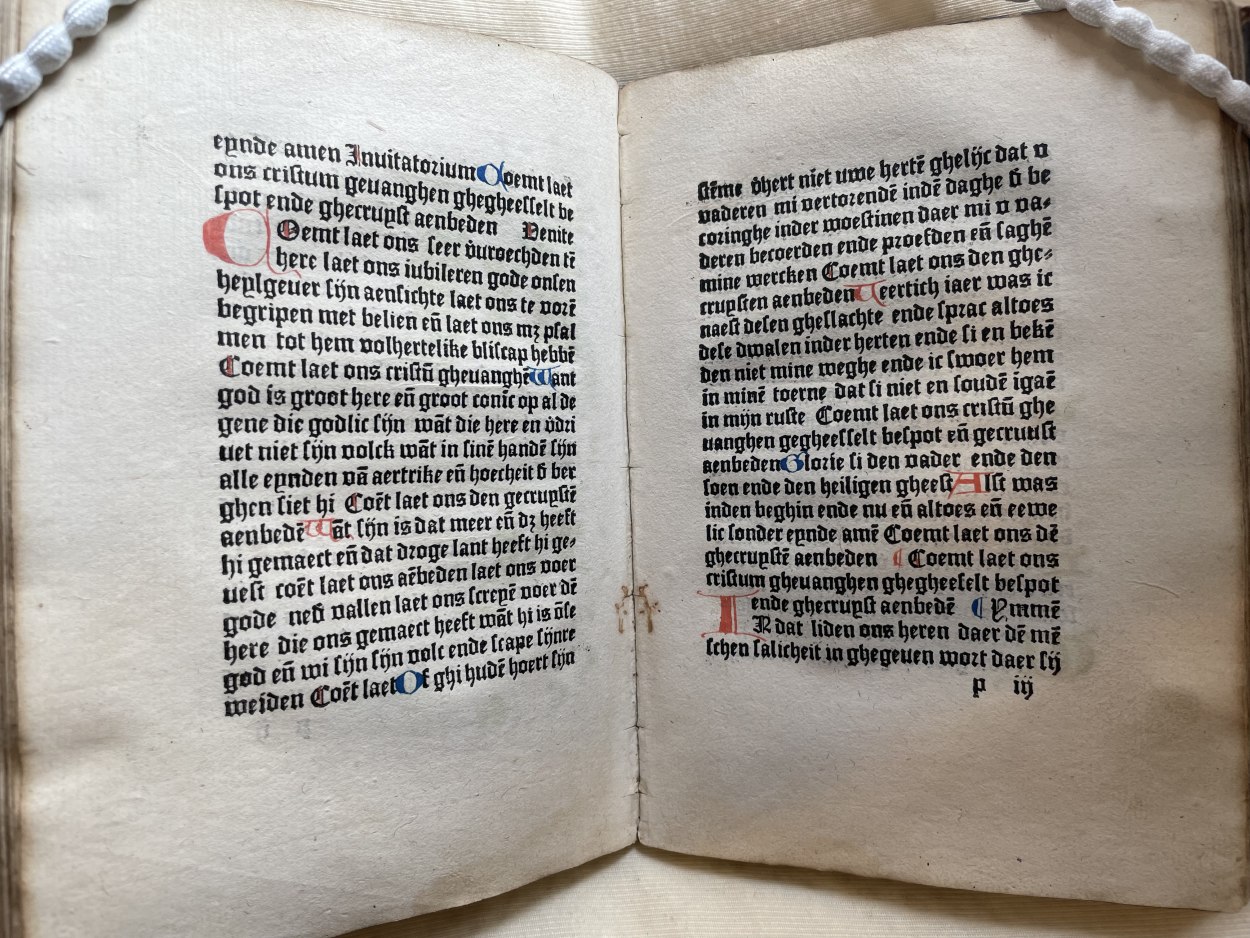 eynde amen Inuitatorium Coemt laet
ons cristum geuanghen ghegheesselt be
spot ende ghecruyst aenbeden Venite
COemt laet ons seer v̇uroechden tē
here laet ons iubileren gode onsen
heylgeuer sijn aensichte laet ons te vorē
begripen met belien eñ laet ons mʒ psal
men tot hem volhertelike bliscap hebbē
Coemt laet ons cristū gheuanghē Want
god is groot here eñ groot conīc op al de
gene die godlic sijn wāt die here en v̇dri
uet niet sijn volck wāt in sinē handē sijn
alle eynden vā aertrike eñ hoecheit đ ber
ghen siet hi Coēt laet ons den gecruystē
aenbedē Wāt sijn is dat meer eñ dʒ heeft
hi gemaect eñ dat droge lant heeft hi ge⸗
uest coēt laet ons aēbeden laet ons voer
gode neđ vallen laet ons screyē voer dē
here die ons gemaect heeft wāt hi is ōse
god eñ wi sijn sijn volc ende scape sijnre
weiden Coēt laet Of ghi hudē hoert sijn
stēme v̇hert niet uwe hertē ghelijc dat v
vaderen mi vertorendē indē daghe đ be
coringhe inder woestinen daer mi v va⸗
deren becoerden ende proefden eñ saghē
mine wercken Coemt laet ons den ghe⸗
cruysten aenbeden Veertich iaer was ic
naest desen gheslachte ende sprac altoes
dese dwalen inder herten ende si en bekē
den niet mine weghe ende ic swoer hem
in minē toerne dat si niet en soudē igaē
in mijn ruste Coemt laet ons cristū ghe
uanghen gegheesselt bespot eñ gecruust
aenbeden Glorie si den vader ende den
soen ende den heiligen gheest Alst was
inden beghin ende nu eñ altoes eñ eewe
lic sonder eynde amē Coemt laet ons dē
ghecruystē aenbeden Coemt laet ons
cristum gheuanghen ghegheeselt bespot
ende ghecruyst aenbedē Ymmē
IN dat liden ons heren daer dē mē
schen salicheit in ghegeuen wort daer sij
p iij